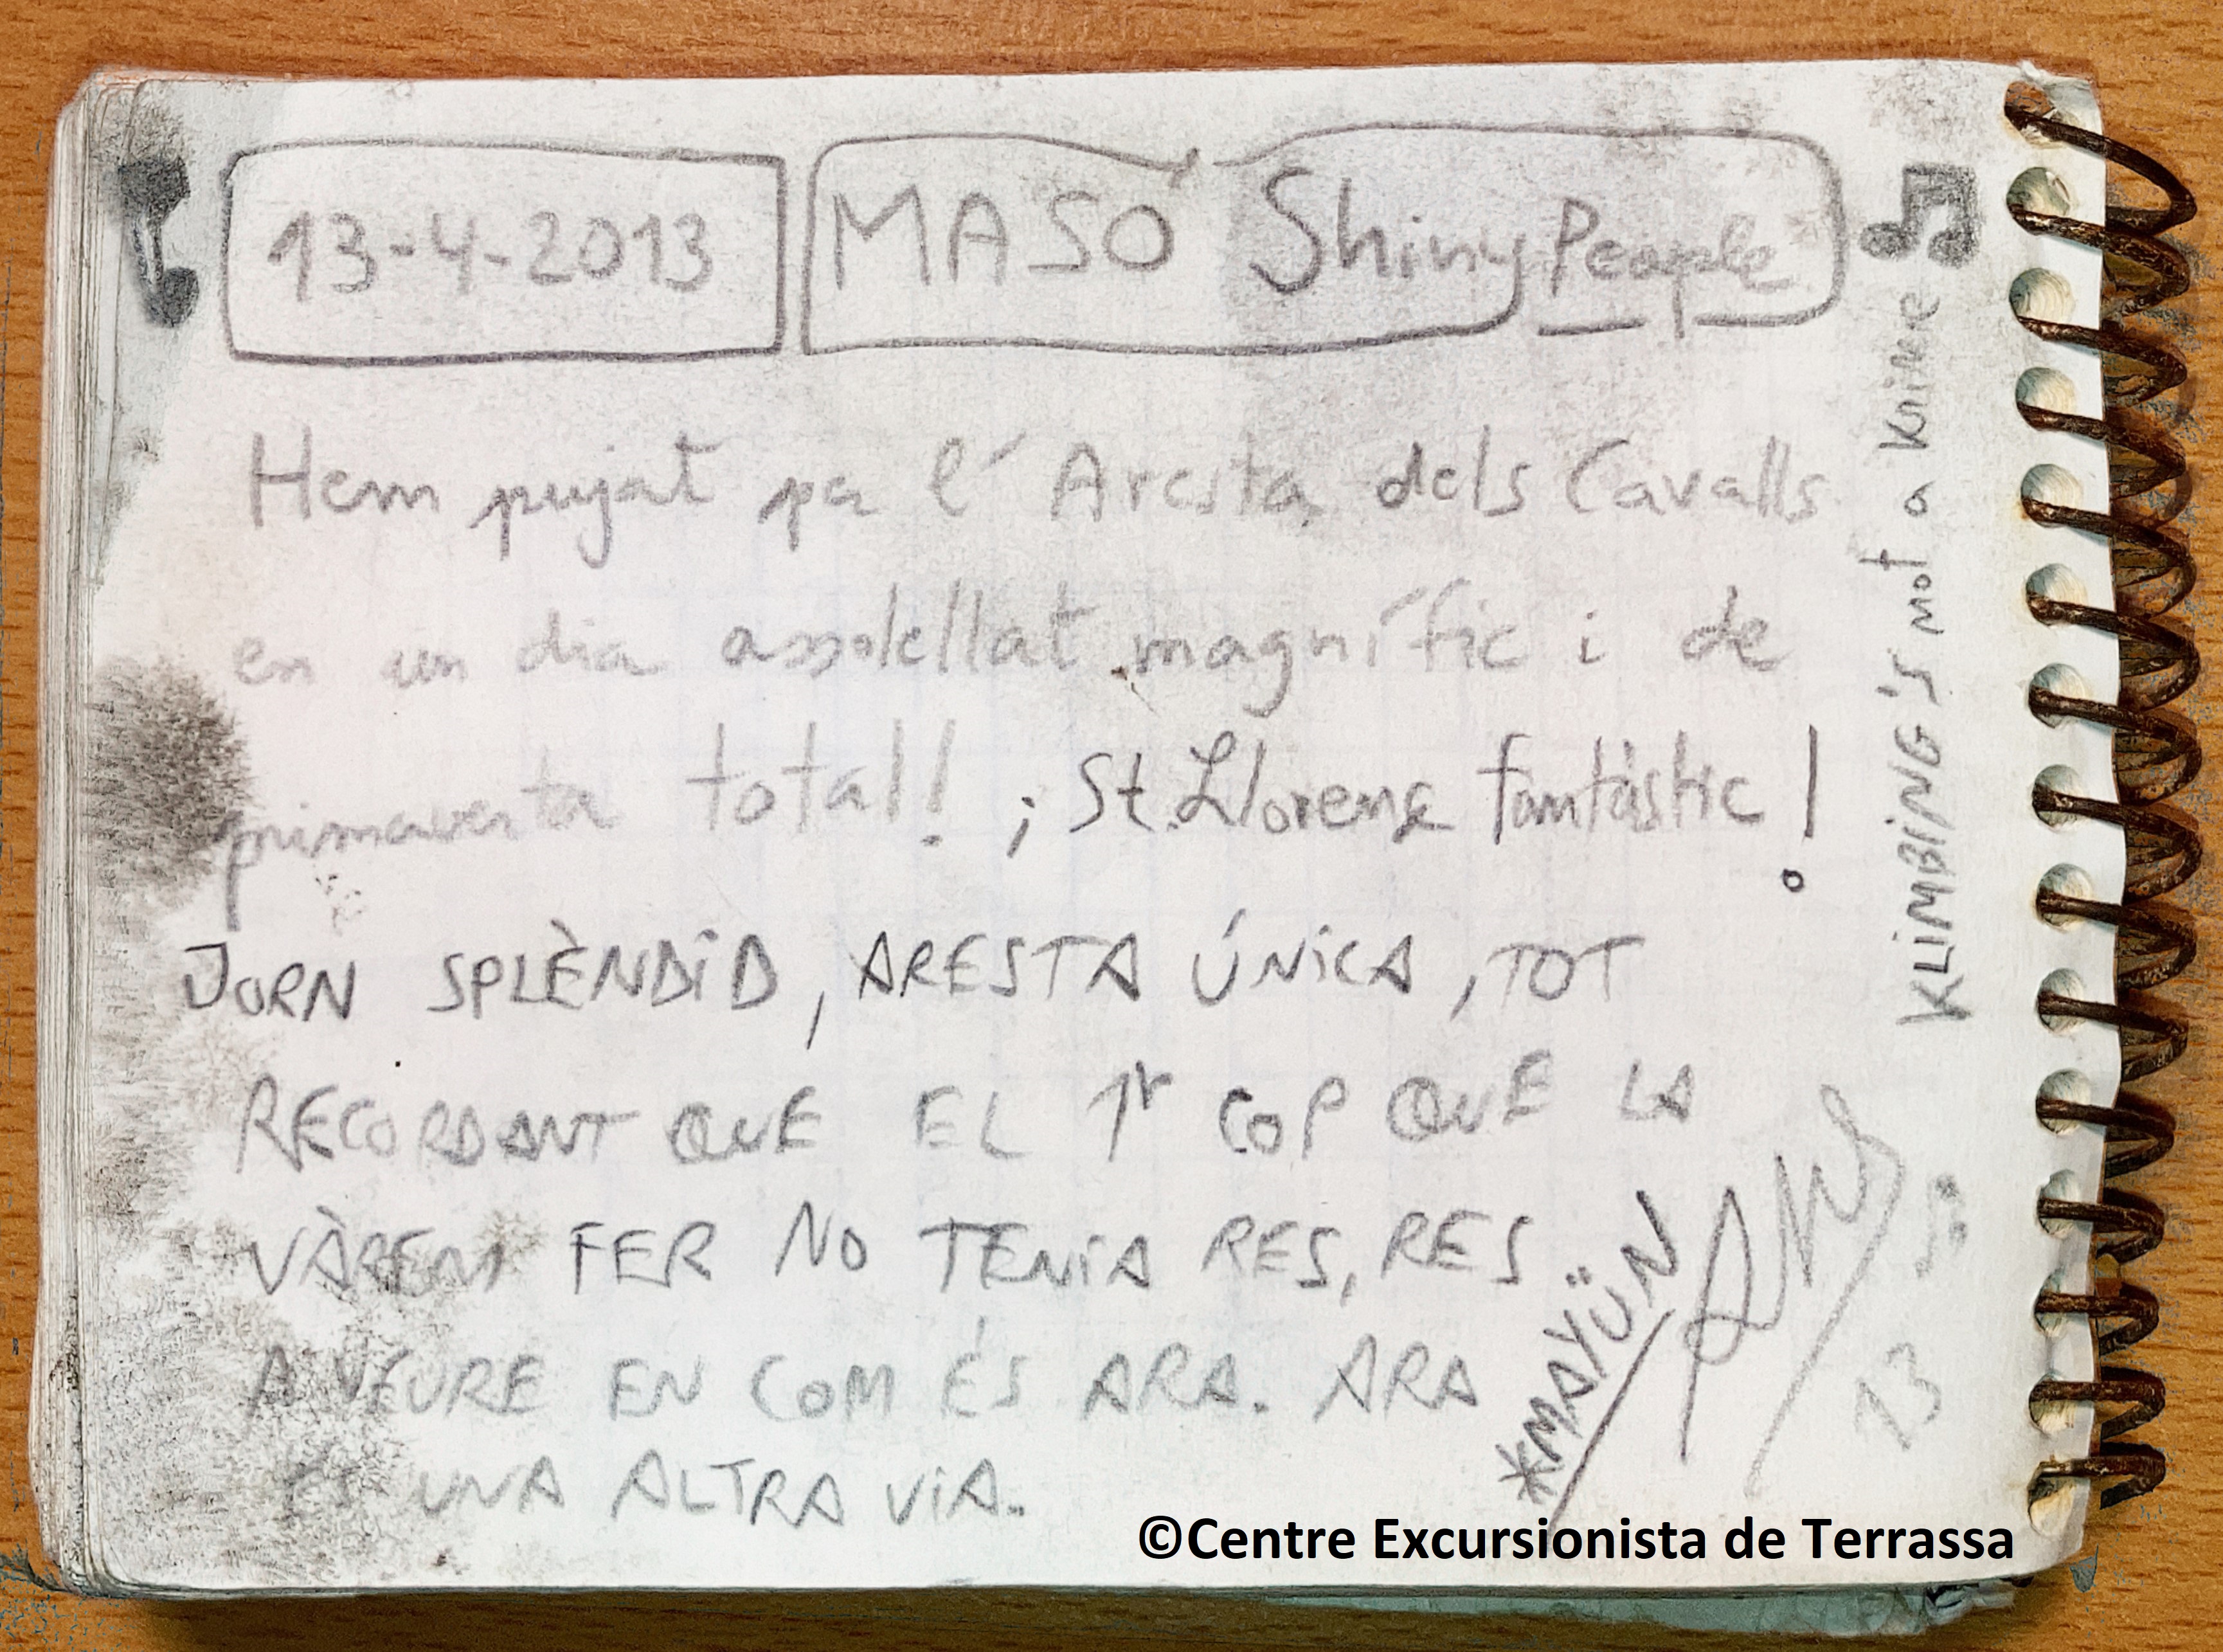 13-4-2013
MASÓ Shiny People
Hem pujat per l'Aresta dels Cavalls
en un dia assolellat magnífic i de
primavera total! ¡St. Llorenç fantàstic!
JORN SPLÈNDID, ARESTA ÚNICA, TOT
RECORDANT QUE EL 1r COP QUE LA
VÀREM FER NO TENIA RES, RES
A VEURE EN COM ÉS ARA. ARA
ÉS UNA ALTRA VIA.
*MAYÜN
13
KLIMBING'S not a Krime
©Centre Excursionista de Terrassa